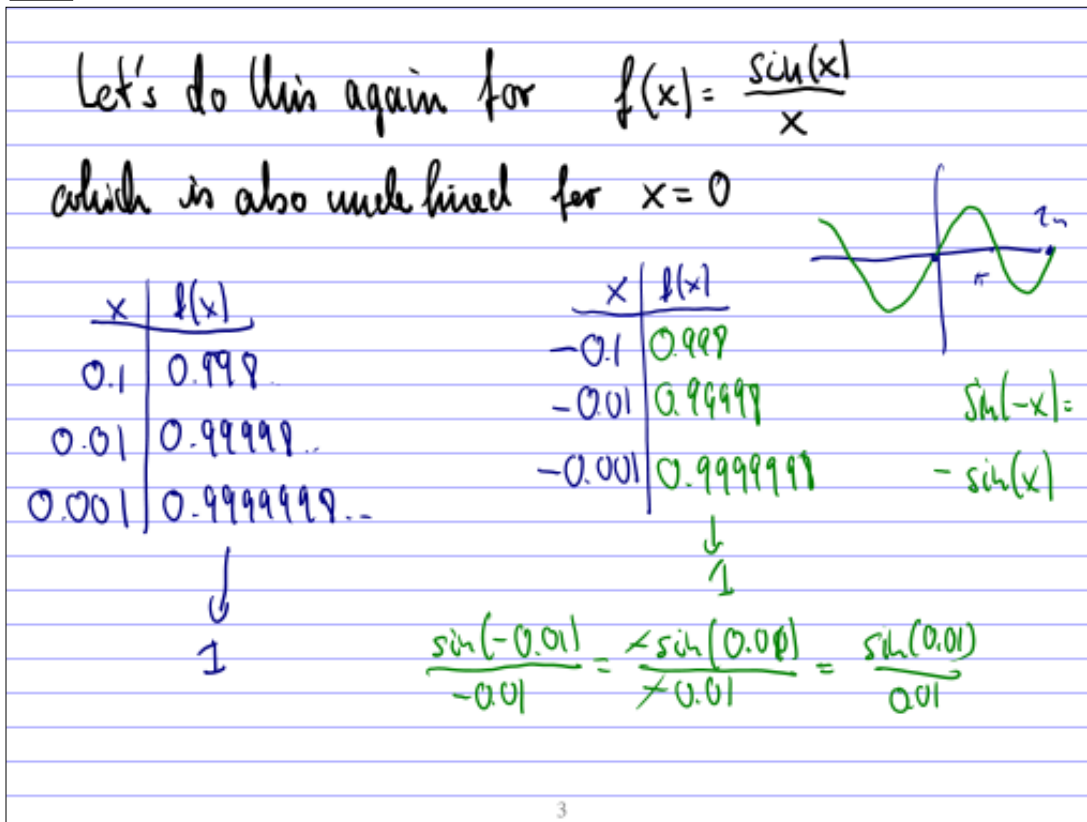 Let's do this again for f(x) = sin(x)/x
which is also undefined for x = 0
2π
π
x | f(x)
0.1 | 0.998..
0.01 | 0.99998..
0.001 | 0.9999998..
↓
1
x | f(x)
-0.1 | 0.998
-0.01 | 0.99998
-0.001 | 0.9999998
↓
1
sin(-x) =
- sin(x)
sin(-0.01)/-0.01 = -sin(0.01)/-0.01 = sin(0.01)/0.01
3